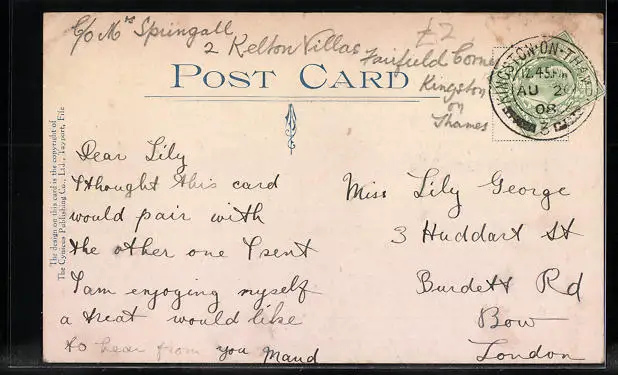 C/o Mrs Springall
2 Kelton Villas
Fairfield Corner
Kingston
on
Thames
£2
POST CARD
KINGSTON-ON-THAMES
12.45PM
AU 26
08
The design on this card is the copyright of
The Cynicus Publishing Co., Ltd., Tayport, Fife
Dear Lily
I thought this card
would pair with
the other one I sent
I am enjoying myself
a treat would like
to hear from you Maud
Miss Lily George
3 Huddart St
Burdett Rd
Bow
London